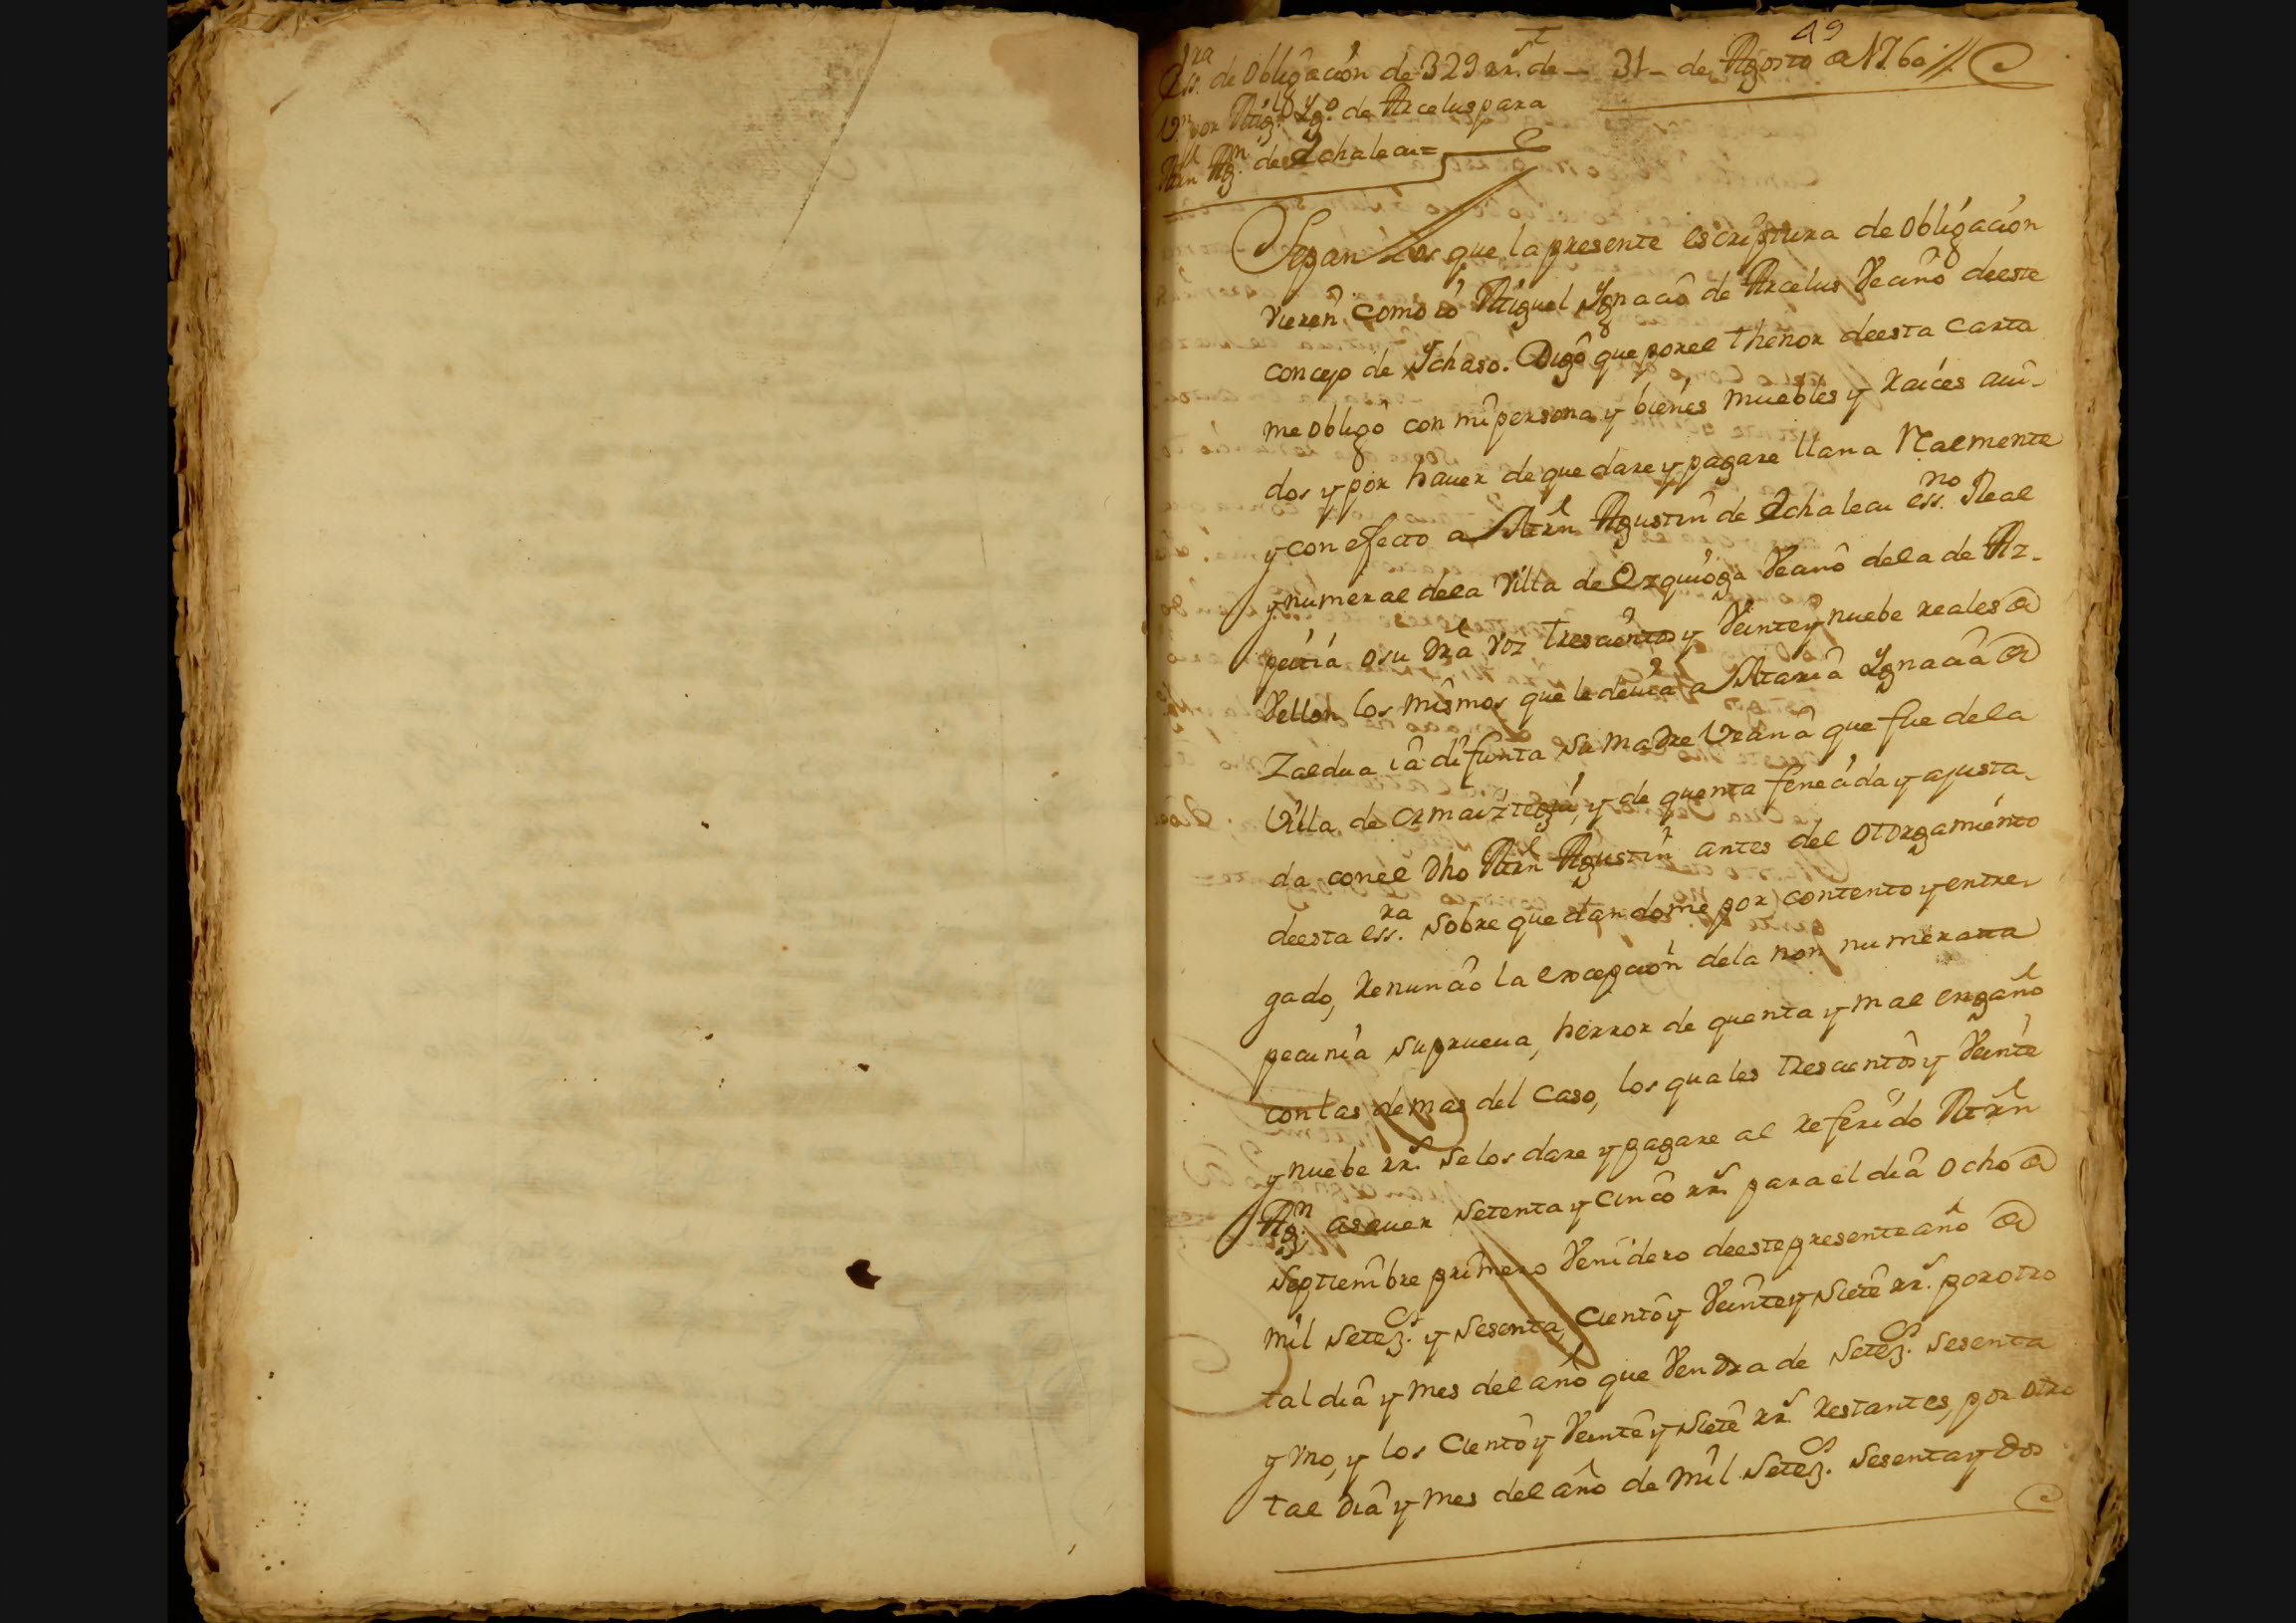 49
Ess.ra de obligación de 329 rr.s de 31 de Agosto a 1760//
Vn por Mig.l Yg.o de Arcelus para
Mrn Ag.n de Echalecu=
Sepan los que la presente escriptura de obligación
vieren como ió Miguel Ygnacio de Arcelus Vecino deeste
concejo de Ychaso. Digo que porel thenor deesta carta
me obligo con mi persona y bienes muebles y raices aui-
dos y por hauer de que dare y pagare llana Realmente
y con efecto a Mrn Agustin de Echalecu ess.no Real
y numeral dela Villa de Ezquioga Vecino dela de Az-
peitia o su dra voz trescientos y Veinte y nuebe reales
Vellon los mismos que le deuia a Maria Ygnacia
Zaldua iá difunta su madre Vecina que fue dela
Villa de Ormaiztegui, y de quenta fenecida y ajusta-
da conel dho Mrn Agustin antes del otorgamiento
deesta ess.ra sobre que dandome por contento y entre-
gado, renuncio la excepcion dela non numerata
pecunia su prueua, herror de quenta y mal engaño
con las demas del caso, los quales trescientos y Veinte
y nuebe rr.s se los dare y pagare al referido Mrn
Ag.n asauer setenta y cinco rr.s para el dia ocho
septiembre primero Venidero deeste presente año
mil setez.s y sesenta, ciento y Veinte y siete rr.s por otro
tal dia y mes del año que Vendra de setez.s sesenta
y vno, y los ciento y Veinte y siete rr.s restantes, por otro
tal dia y mes del año de mil setez.s sesenta y dos